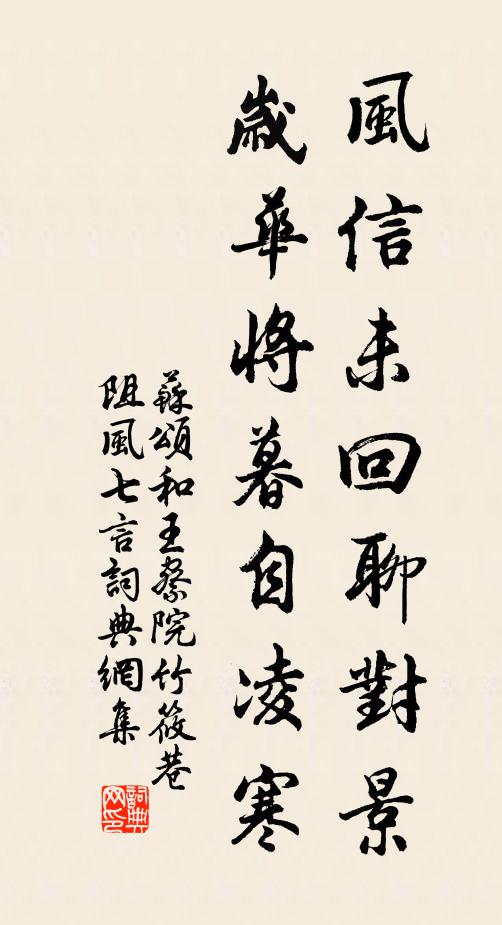 風信未回聊對景
歲華將暮自凌寒
蘇頌和王察院竹筱巷
阻風七言詞典網集
詞典网印